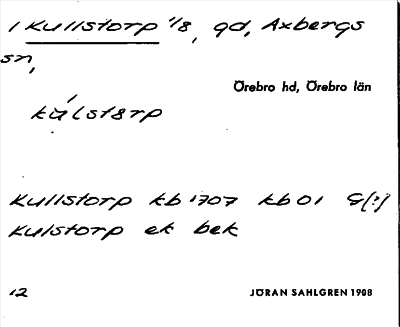 1 Kullstorp 1/8, gd, Axbergs
sn,
Örebro hd, Örebro län
kùĺstərp
Kullstorp kb 1707 kb 01 G(?)
Kulstorp ek bek
12 JÖRAN SAHLGREN 1908